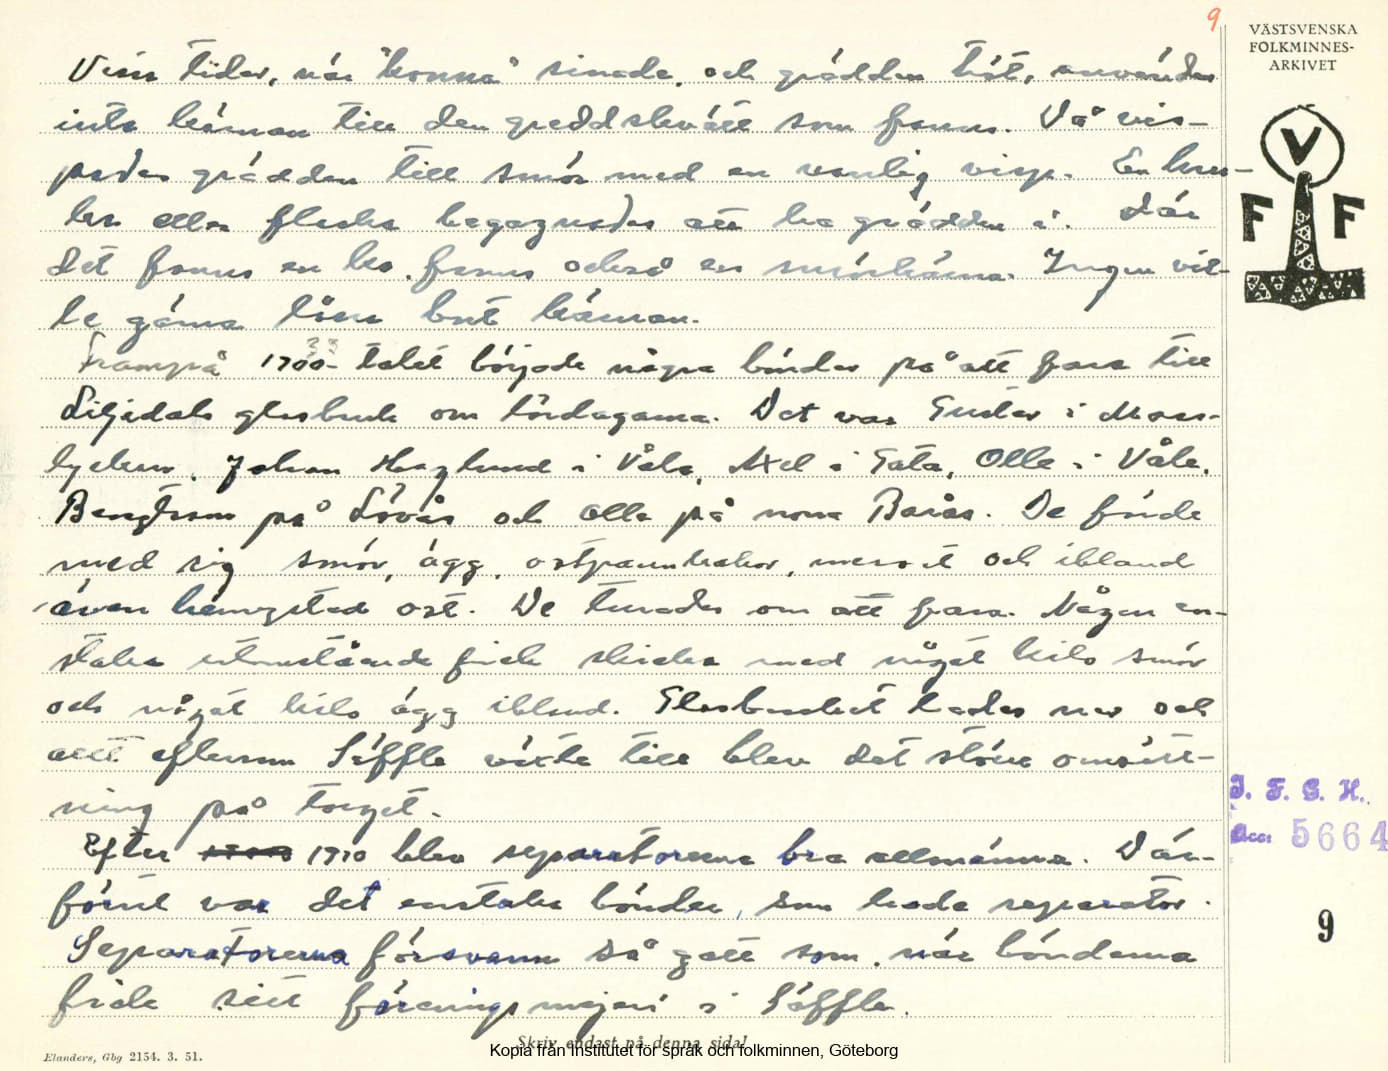 9
VÄSTSVENSKA
FOLKMINNES-
ARKIVET
V
F F
Vissa tider, när "konna" sinade, och grädden tröt, användes
inte kärnan till den gräddskvätt som fanns. Då vis-
pades grädden till smör med en vanlig visp. En kru-
ka eller flaska begagnades att ha grädden i. Där
det fanns en ko, fanns också en smörkärna. Ingen vil-
le gärna låna bort kärnan.
Frampå 1700- talet började några bönder på att fara till
Liljedals glasbruk om lördagarna. Det var Gustav i Moss-
lycken, Johan Haglund i Våla, Axel i Tata, Olle i Våla,
Bengtsson på Lövås och Olle på norra Barås. De förde
med sig smör, ägg, ostpannkakor, messot och ibland
även hemystad ost. De turades om att fara. Någon en-
staka utomstående fick skicka med något kilo smör
och något kilo ägg ibland. Glasbruket lades ner och
allt eftersom Säffle växte till blev det större omsätt-
ning på torget.
Efter 1910 blev separatorerna bra allmänna. Där-
förut var det enstaka bönder, som hade separator.
Separatorerna försvann så gott som, när bönderna
fick sitt föreningsmejeri i Säffle.
I. F. G. H.
Acc: 5664
9
Skriv endast på denna sida!
Elanders, Gbg 2154. 3. 51.
Kopia från Institutet för språk och folkminnen, Göteborg